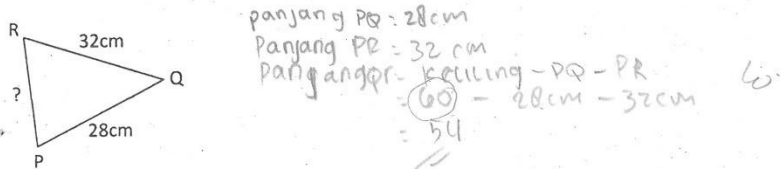 R
32cm
Q
?
28cm
P
panjang PQ = 28cm
Panjang PR = 32 cm
Pangangqr = Keliling - PQ - PR
= 60 - 28cm - 32cm
= 54